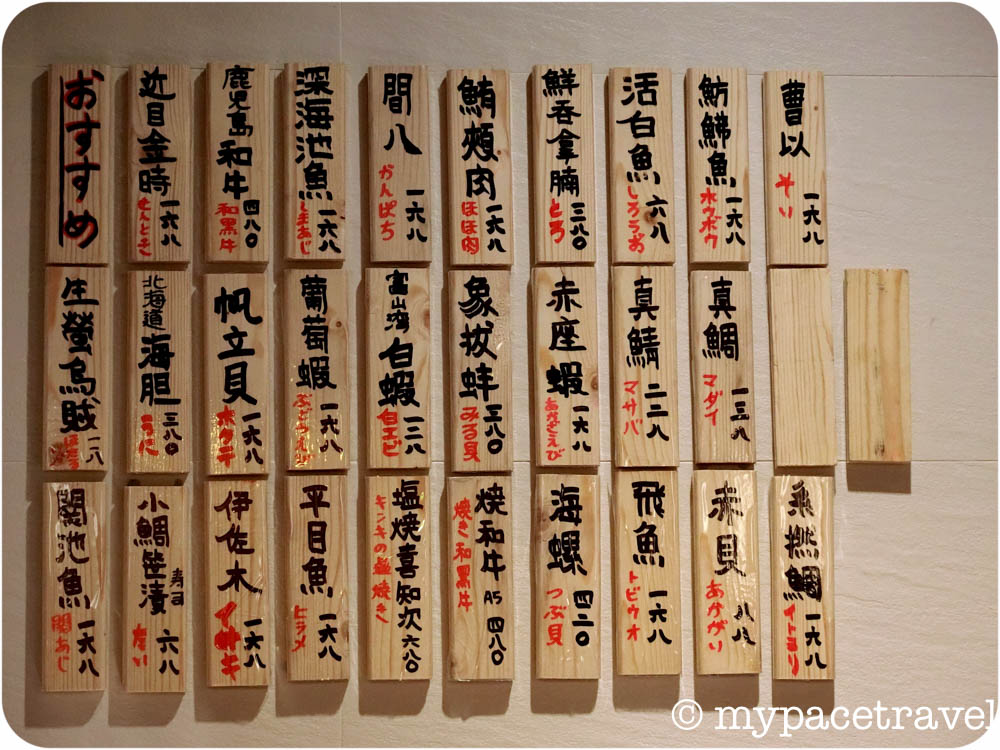 おすすめ
近目金時
一六八
せんとき
鹿児島和牛
四八〇
和黒牛
深海池魚
一六八
しまあじ
間八
一六八
かんぱち
鮪頰肉
一六八
ほほ肉
鮮呑拿腩
三八〇
とろ
活白魚
六八
しろうお
魴鮄魚
一六八
ホウボウ
曹以
一六八
そい
生螢烏賊
一二八
北海道海胆
三八〇
うに
帆立貝
一六八
ホタテ
葡萄蝦
一六八
ぶどうえび
富山湾白蝦
一二八
白エビ
象拔蚌
三八〇
みる貝
赤座蝦
一六八
あかざえび
真鯖
二三八
マサバ
真鯛
一三八
マダイ
関池魚
一六八
関あじ
小鯛笹漬
寿司
六八
伊佐木
一六八
イサキ
平目魚
一六八
ヒラメ
塩焼喜知次
六八〇
キンキの塩焼き
焼和牛
A5
四八〇
焼き和黒牛
海螺
四二〇
つぶ貝
飛魚
一六八
トビウオ
赤貝
八八
あかがい
糸撚鯛
一六八
イトヨリ
© mypacetravel